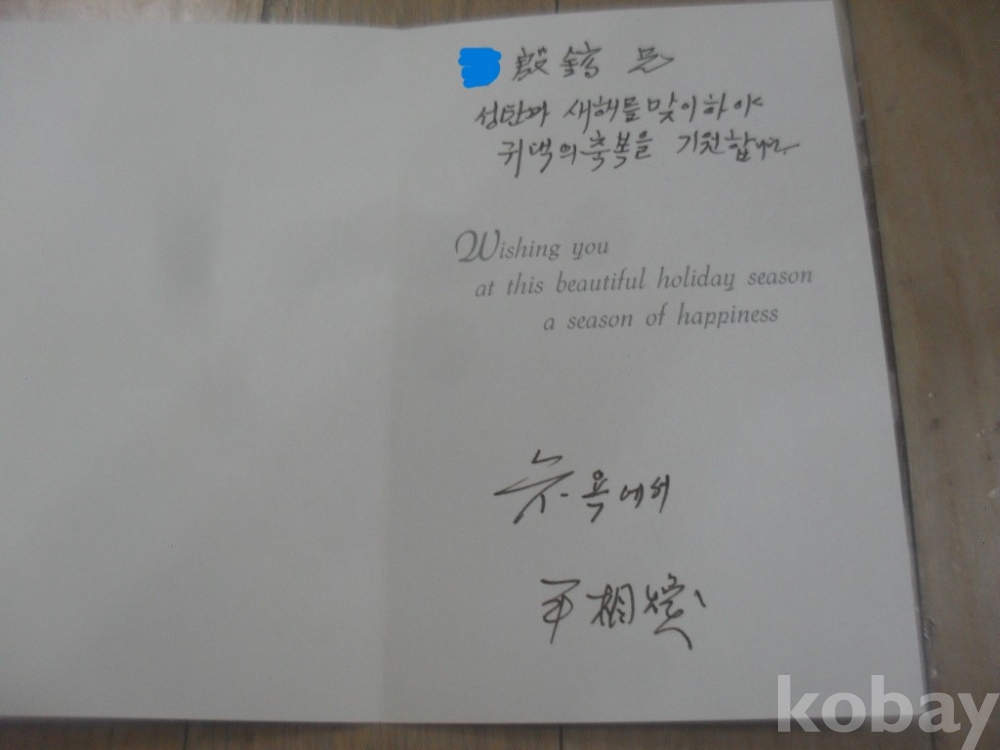 兄
성탄과 새해를 맞이하야
귀댁의 축복을 기원합니다.
Wishing you
at this beautiful holiday season
a season of happiness
뉴-욕에서
相
kobay